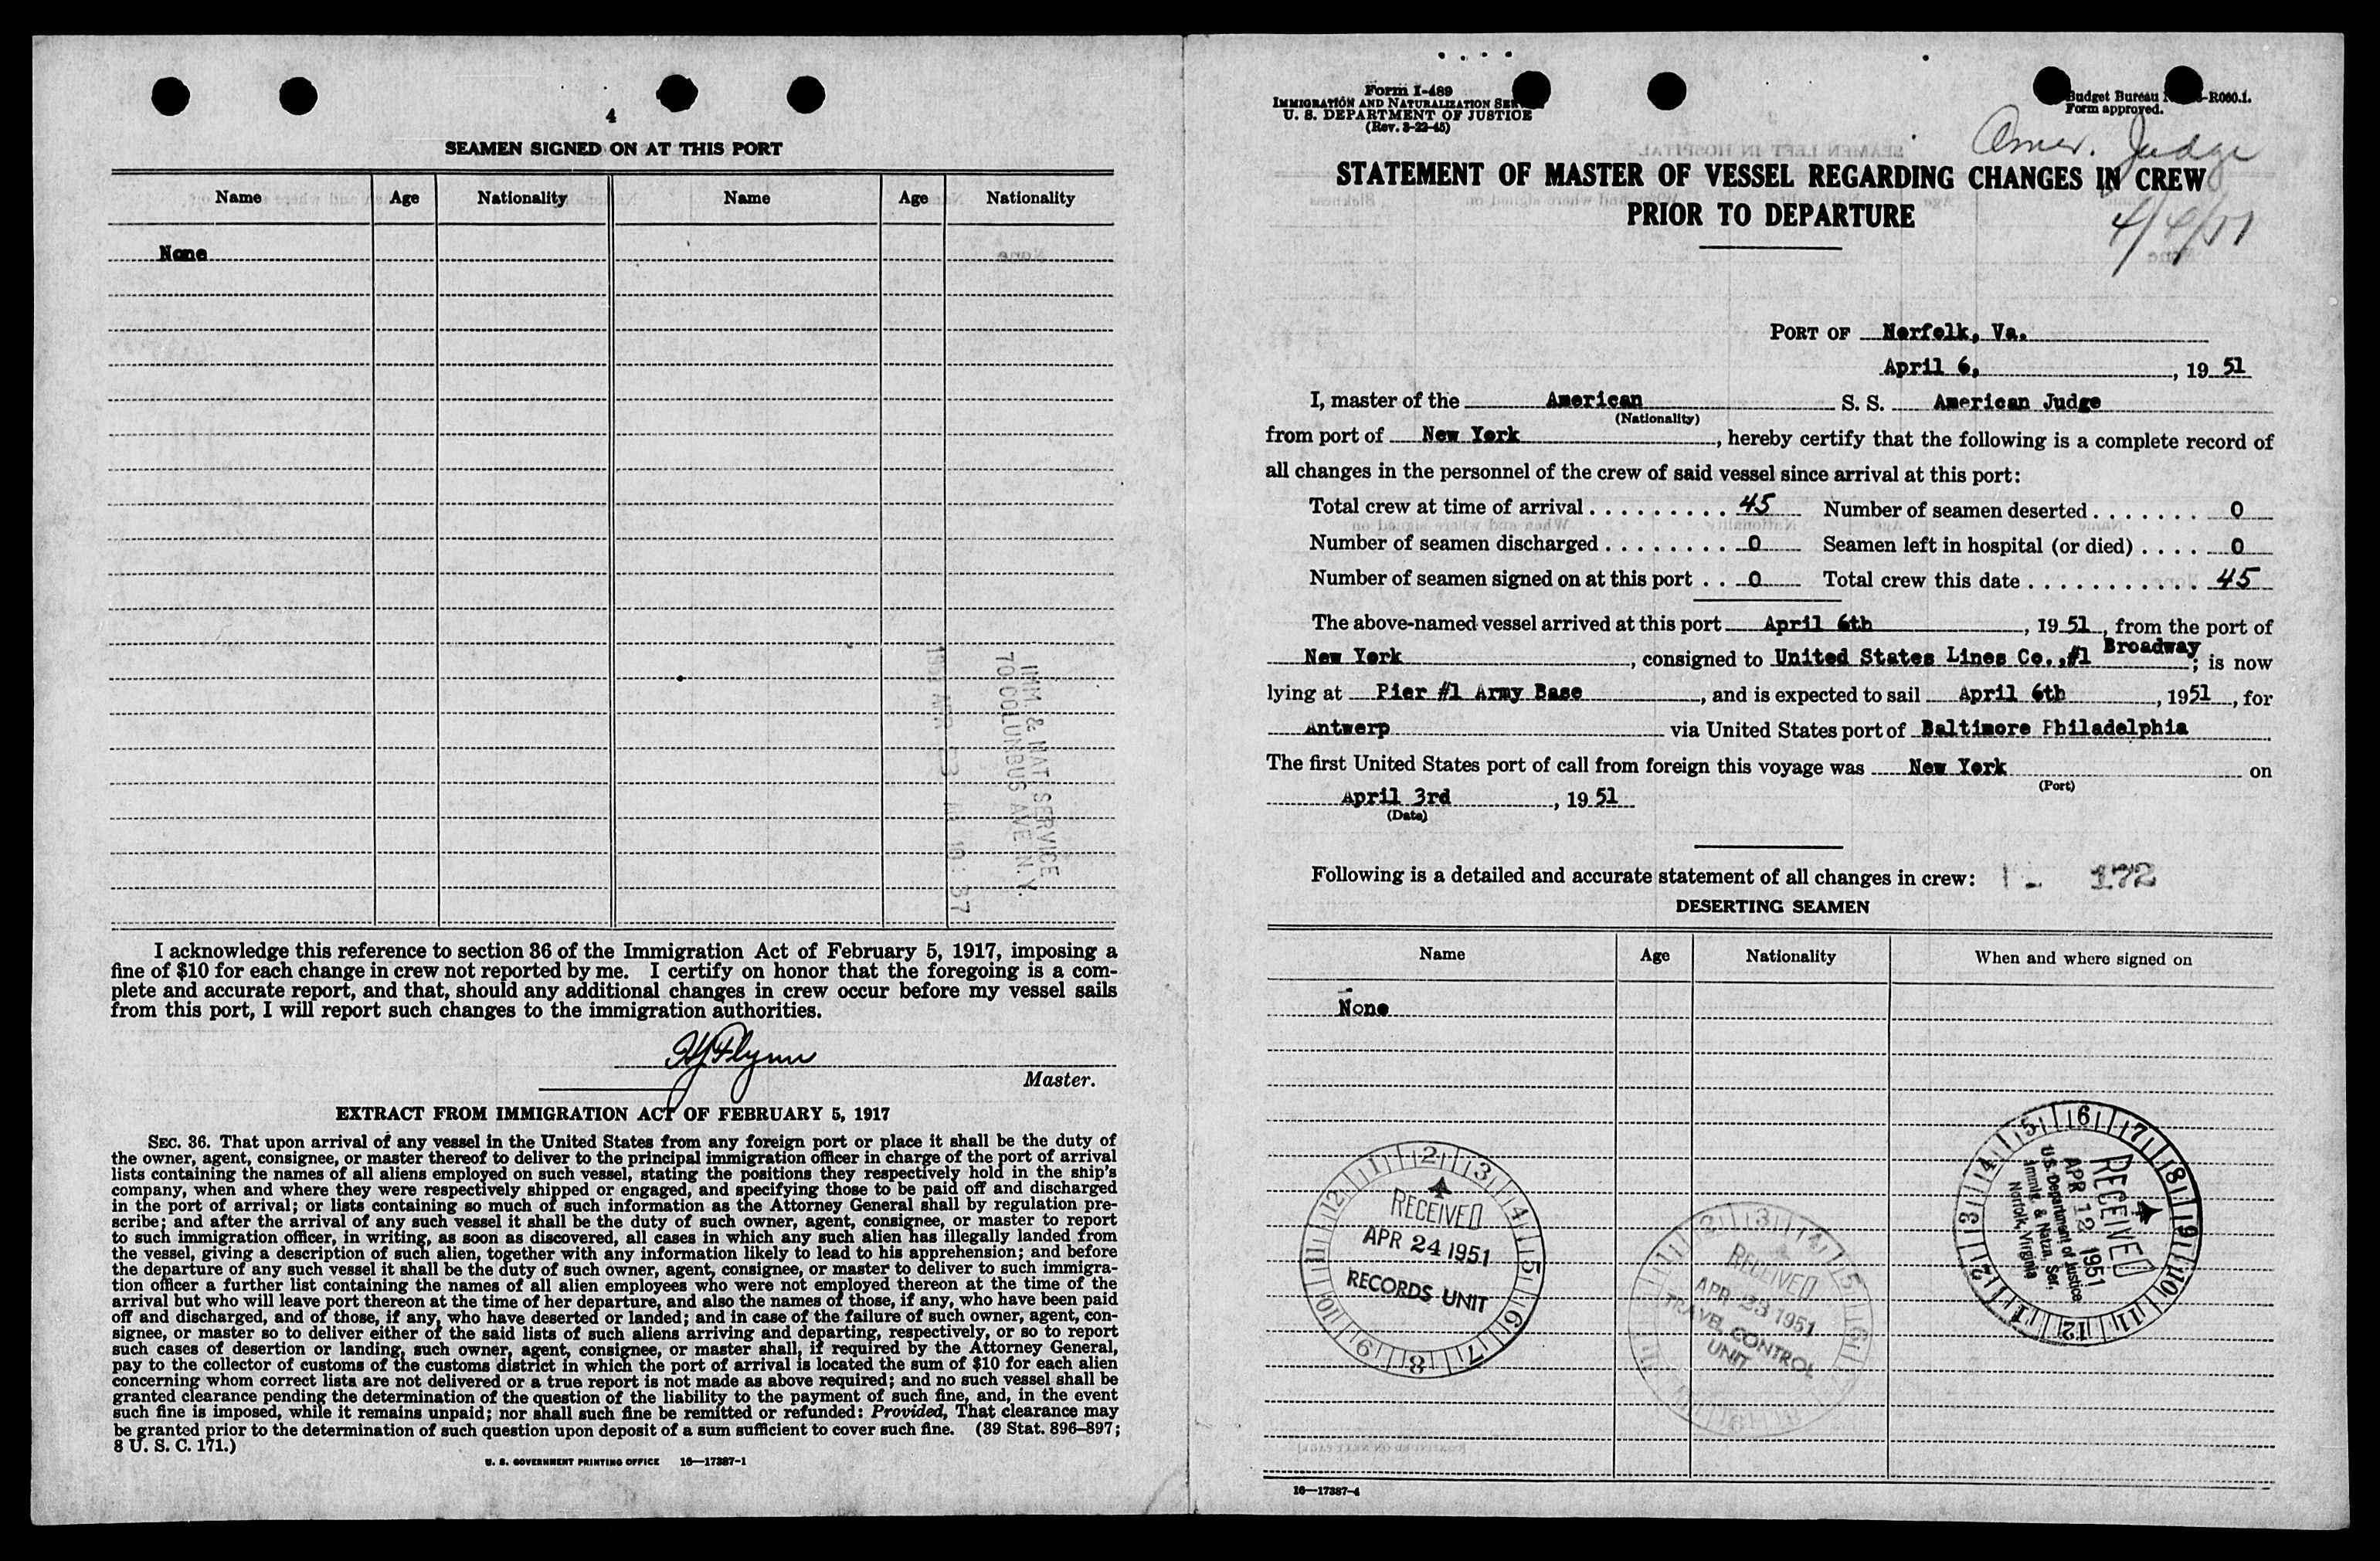 4
SEAMEN SIGNED ON AT THIS PORT
Name Age Nationality Name Age Nationality
None
IMM. & NAT SERVICE
70 COLUMBUS AVE N.Y.
I acknowledge this reference to section 36 of the Immigration Act of February 5, 1917, imposing a
fine of $10 for each change in crew not reported by me. I certify on honor that the foregoing is a com-
plete and accurate report, and that, should any additional changes in crew occur before my vessel sails
from this port, I will report such changes to the immigration authorities.
HJFlynn
Master.
EXTRACT FROM IMMIGRATION ACT OF FEBRUARY 5, 1917
SEC. 36. That upon arrival of any vessel in the United States from any foreign port or place it shall be the duty of
the owner, agent, consignee, or master thereof to deliver to the principal immigration officer in charge of the port of arrival
lists containing the names of all aliens employed on such vessel, stating the positions they respectively hold in the ship's
company, when and where they were respectively shipped or engaged, and specifying those to be paid off and discharged
in the port of arrival; or lists containing so much of such information as the Attorney General shall by regulation pre-
scribe; and after the arrival of any such vessel it shall be the duty of such owner, agent, consignee, or master to report
to such immigration officer, in writing, as soon as discovered, all cases in which any such alien has illegally landed from
the vessel, giving a description of such alien, together with any information likely to lead to his apprehension; and before
the departure of any such vessel it shall be the duty of such owner, agent, consignee, or master to deliver to such immigra-
tion officer a further list containing the names of all alien employees who were not employed thereon at the time of the
arrival but who will leave port thereon at the time of her departure, and also the names of those, if any, who have been paid
off and discharged, and of those, if any, who have deserted or landed; and in case of the failure of such owner, agent, con-
signee, or master so to deliver either of the said lists of such aliens arriving and departing, respectively, or so to report
such cases of desertion or landing, such owner, agent, consignee, or master shall, if required by the Attorney General,
pay to the collector of customs of the customs district in which the port of arrival is located the sum of $10 for each alien
concerning whom correct lists are not delivered or a true report is not made as above required; and no such vessel shall be
granted clearance pending the determination of the question of the liability to the payment of such fine, and, in the event
such fine is imposed, while it remains unpaid; nor shall such fine be remitted or refunded: Provided, That clearance may
be granted prior to the determination of such question upon deposit of a sum sufficient to cover such fine. (39 Stat. 896-897;
8 U. S. C. 171.)
U. S. GOVERNMENT PRINTING OFFICE 16—17387-1
Form I-489
IMMIGRATION AND NATURALIZATION
U. S. DEPARTMENT OF JUSTICE
(Rev. 3-22-45)
Budget Bureau -R060.1.
Form approved.
Amer. Judge
STATEMENT OF MASTER OF VESSEL REGARDING CHANGES IN CREW
PRIOR TO DEPARTURE
PORT OF Norfolk, Va.
April 6, , 19 51
I, master of the American S. S. American Judge
(Nationality)
from port of New York , hereby certify that the following is a complete record of
all changes in the personnel of the crew of said vessel since arrival at this port:
Total crew at time of arrival . . . . . . . . . 45 Number of seamen deserted . . . . . . . 0
Number of seamen discharged . . . . . . . . 0 Seamen left in hospital (or died) . . . . 0
Number of seamen signed on at this port . . 0 Total crew this date . . . . . . . . . . . 45
The above-named vessel arrived at this port April 6th , 19 51 , from the port of
New York , consigned to United States Lines Co., #1 Broadway ; is now
lying at Pier #1 Army Base , and is expected to sail April 6th , 1951 , for
Antwerp via United States port of Baltimore Philadelphia
The first United States port of call from foreign this voyage was New York on
(Port)
April 3rd , 19 51
(Date)
Following is a detailed and accurate statement of all changes in crew: 172
DESERTING SEAMEN
Name Age Nationality When and where signed on
None
RECEIVED
APR 24 1951
RECORDS UNIT
RECEIVED
APR 23 1951
TRAVEL CONTROL
UNIT
RECEIVED
APR 12 1951
U.S. Department of Justice
Immig. & Natzn. Ser.
Norfolk, Virginia
16—17387-4